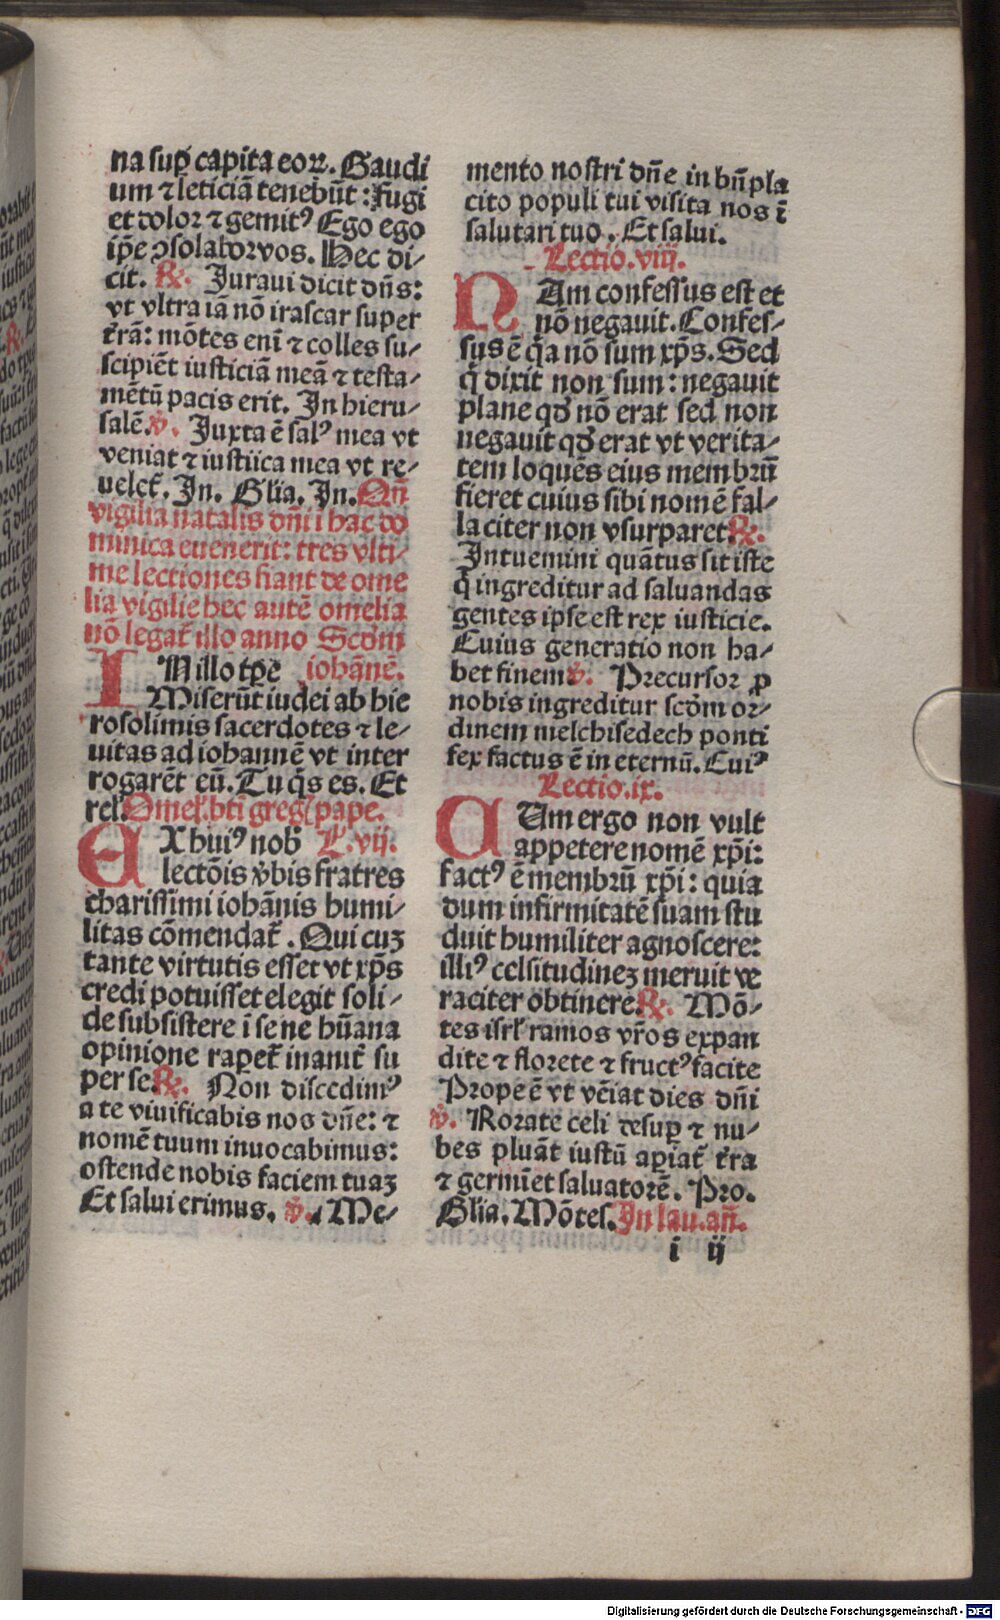 na sup̱ capita eoꝝ. Gaudi
um ⁊ leticiā tenebūt : fugi
et dolor ⁊ gemitꝰ Ego ego
ip̄e ꝯsolabor vos. Hec di⸗
cit. ℞. Juraui dicit dn̄s:
vt vltra iā nō irascar super
t̄rā: mōtes eni̅ ⁊ colles su⸗
scipiēt iusticiā meā ⁊ testa⸗
mētū pacis erit. In hieru⸗
salē. ℣. Juxta ē salꝰ mea vt
veniat ⁊ iustiica mea vt re⸗
uelet̄. In. Glia. In. Qn̄
vigilia natalis dn̄i i hac do
minica euenerit: tres vlti⸗
me lectiones fiant de ome
lia vigilie hec autē omelia
nō legat̄ illo anno Scdm
IN illo tp̄e iohānē.
Miserūt iudei ab hie
rosolimis sacerdotes ⁊ le⸗
uitas ad iohannē vt inter
rogarēt eū. Tu q̄s es. Et
rel̓. Omel̓. bti̅ greg̓ pape.
EX huiꝰ nob̓ L̓. vij.
lectōis v̓bis fratres
charissimi iohānis humi⸗
litas cōmendat̄. Qui cuʒ
tante virtutis esset vt xp̄s
credi potuisset elegit soli⸗
de subsistere i se ne hūana
opinione rapet̄ inanit̄ su
per se. ℞. Non discedimꝰ
a te viuificabis nos dn̄e: ⁊
nomē tuum inuocabimus:
ostende nobis faciem tuaʒ
Et salui erimus. ℣. Me⸗
mento nostri dn̄e in bn̄pla
cito populi tui visita nos ī
salutari tuo. Et salui.
Lectio. viij.
NAm confessus est et
nō negauit. Confes⸗
sus ē q̄a nō sum xp̄s. Sed
q̄ dixit non sum: negauit
plane qd̓ nō erat sed non
negauit qd̓ erat vt verita⸗
tem loquēs eius membrū
fieret cuius sibi nomē fal⸗
laciter non vsurparet ℞.
Intuemini quātus sit iste
q̄ ingreditur ad saluandas
gentes ipse est rex iusticie.
Cuius generatio non ha⸗
bet finem ℣. Precursor ꝓ
nobis ingreditur scd̄m or⸗
dinem melchisedech ponti
fex factus ē in eternū. Cuiꝰ
Lectio. ix.
CUm ergo non vult
appetere nomē xp̄i:
factꝰ ē membrū xp̄i: quia
dum infirmitatē suam stu
duit humiliter agnoscere:
illiꝰ celsitudineʒ meruit ve
raciter obtinere ℞. Mō⸗
tes isrl̓ ramos vr̄os expan
dite ⁊ florete ⁊ fructꝰ facite
Prope ē vt vēiat dies dn̄i
℣. Rorate celi desup̱ ⁊ nu⸗
bes pluāt iustū ap̱iat̄ t̄ra
⁊ germi̅et saluatorē. Pro.
Glia. Mōtes. In lau. an̄.
i ij
Digitalisierung gefördert durch die Deutsche Forschungsgemeinschaft - DFG